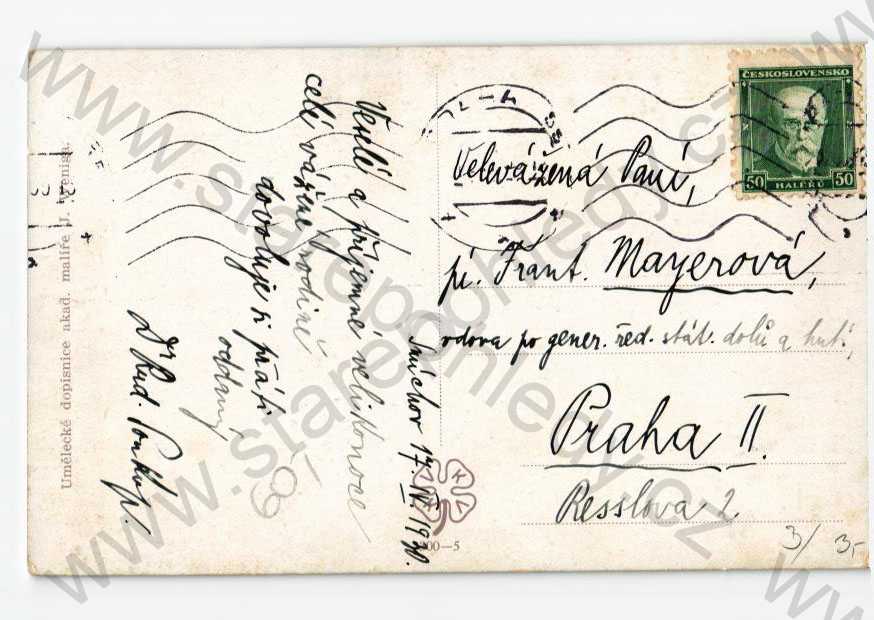 Umělecké dopisnice akad. malíře J. Wenig a.
Smíchov 17/IV 1930.
Veselé a příjemné velikonoce
celé vážené rodině
dovoluje si přáti
oddaný
Dr Rud.
ČESKOSLOVENSKO
50 HALÉŘŮ 50
Velevážená Paní,
pí. Frant. Mayerová,
vdova po gener. řed. stát. dolů a hutí,
Praha II.
Resslova 2.
3/ 3,-
200—5
www.starepohledy.cz
www.starepohledy.cz